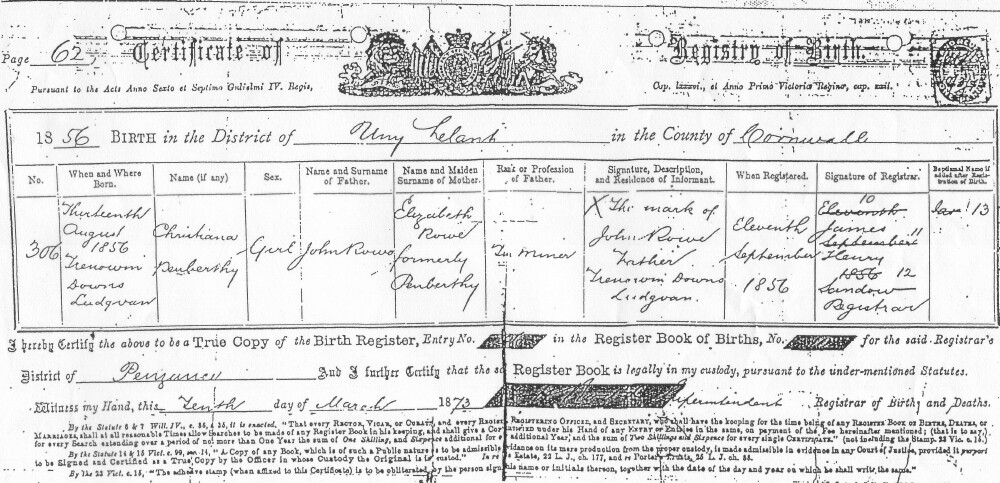 Page 62
Certificate of Registry of Birth.
Pursuant to the Acts Anno Sexto et Septimo Gulielmi IV. Regis, Cap. lxxxvi., et Anno Primo Victoriæ Reginæ, cap. xxii.
1856 BIRTH in the District of Uny Lelant in the County of Cornwall
No.
When and Where Born.
Name (if any)
Sex.
Name and Surname of Father.
Name and Maiden Surname of Mother.
Rank or Profession of Father.
Signature, Description, and Residence of Informant.
When Registered.
Signature of Registrar.
Baptismal Name if added after Registration of Birth.
306
Thirteenth
August
1856
Trenowin
Downs
Ludgvan
Christiana
Penberthy
Girl
John Rowe
Elizabeth
Rowe
formerly
Penberthy
Tin Miner
X The mark of
John Rowe
Father
Trenowin Downs
Ludgvan.
Eleventh
September
1856
10
Eleventh
James 11
September
Henry
1856 12
Sandow
Registrar
13
I hereby Certify the above to be a True Copy of the Birth Register, Entry No. in the Register Book of Births, No. for the said Registrar's
District of Penzance And I further Certify that the Register Book is legally in my custody, pursuant to the under-mentioned Statutes.
Witness my Hand, this Tenth day of March 1873 Superintendent Registrar of Births and Deaths.
By the Statute 6 & 7 Will. IV., c. 86, s. 35, it is enacted, "That every RECTOR, VICAR, or CURATE, and every REGISTRAR, REGISTERING OFFICER, and SECRETARY, who shall have the keeping for the time being of any REGISTER BOOK of BIRTHS, DEATHS, or
MARRIAGES, shall at all reasonable Times allow searches to be made of any Register Book in his keeping, and shall give a Copy certified under his Hand of any ENTRY or ENTRIES in the same, on payment of the Fee hereinafter mentioned; (that is to say,)
for every Search extending over a period of not more than One Year the sum of One Shilling, and Sixpence additional for every additional Year; and the sum of Two Shillings and Sixpence for every single CERTIFICATE." (not including the Stamp. 23 Vic. c. 15.)
By the Statute 14 & 15 Vict. c. 99, sec. 14, "A Copy of any Book, which is of such a Public nature as to be admissible in evidence on its mere production from the proper custody, is made admissible in evidence in any Court of Justice, provided it purport
to be Signed and Certified as a True Copy by the Officer in whose Custody the Original is Entrusted." In re Estate, 22 L. J. ch. 177, and re Porter's Trusts, 25 L. J. ch. 688.
By the 23 Vict. c. 15, "The adhesive stamp (when affixed to this Certificate) is to be obliterated by the person signing his name or initials thereon, together with the date of the day and year on which he shall write the same."